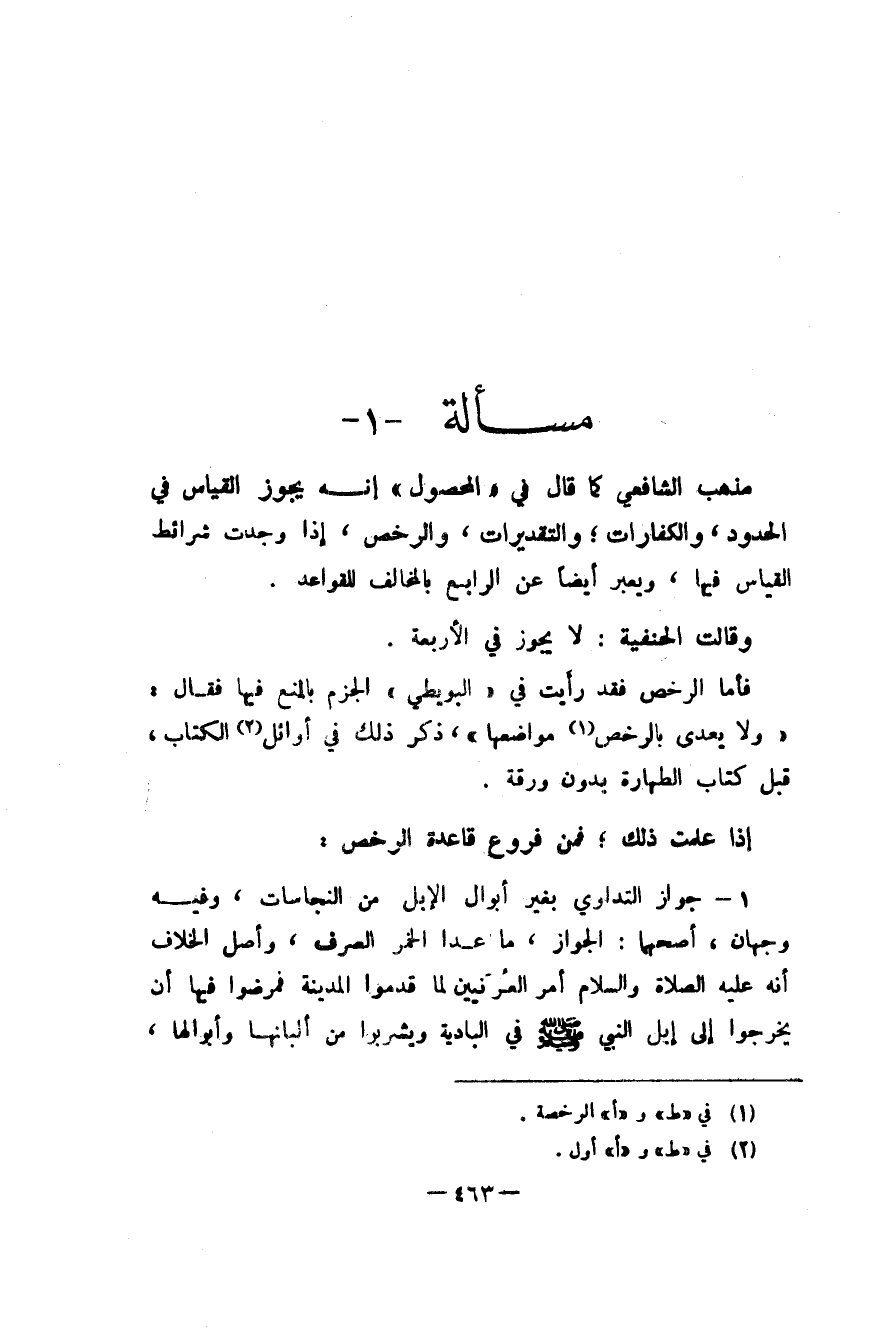 مسـألة -١-
مذهب الشافعي كما قال في «المحصول» إنـه يجوز القياس في
الحدود ، والكفارات ؛ والتقديرات ، والرخص ، إذا وجدت شرائط
القياس فيها ، ويعبر أيضاً عن الرابع بالمخالف للقواعد .
وقالت الحنفية : لا يجوز في الأربعة .
فأما الرخص فقد رأيت في « البويطي » الجزم بالمنع فيها فقـال :
« ولا يعدى بالرخص(١) مواضعها » ، ذكر ذلك في أوائل(٢) الكتاب ،
قبل كتاب الطهارة بدون ورقة .
إذا علمت ذلك ؛ فمن فروع قاعدة الرخص :
١ – جواز التداوي بغير أبوال الإبل من النجاسات ، وفيـه
وجهان ، أصحها : الجواز ، ما عـدا الخمر الصرف ، وأصل الخلاف
أنه عليه الصلاة والسلام أمر العُرَنيين لما قدموا المدينة فمرضوا فيها أن
يخرجوا إلى إبل النبي ﷺ في البادية ويشربوا من ألبانهـا وأبوالها ،
(١) في «ط» و «أ» الرخصة .
(٢) في «ط» و «أ» أول .
— ٤٦٣ —